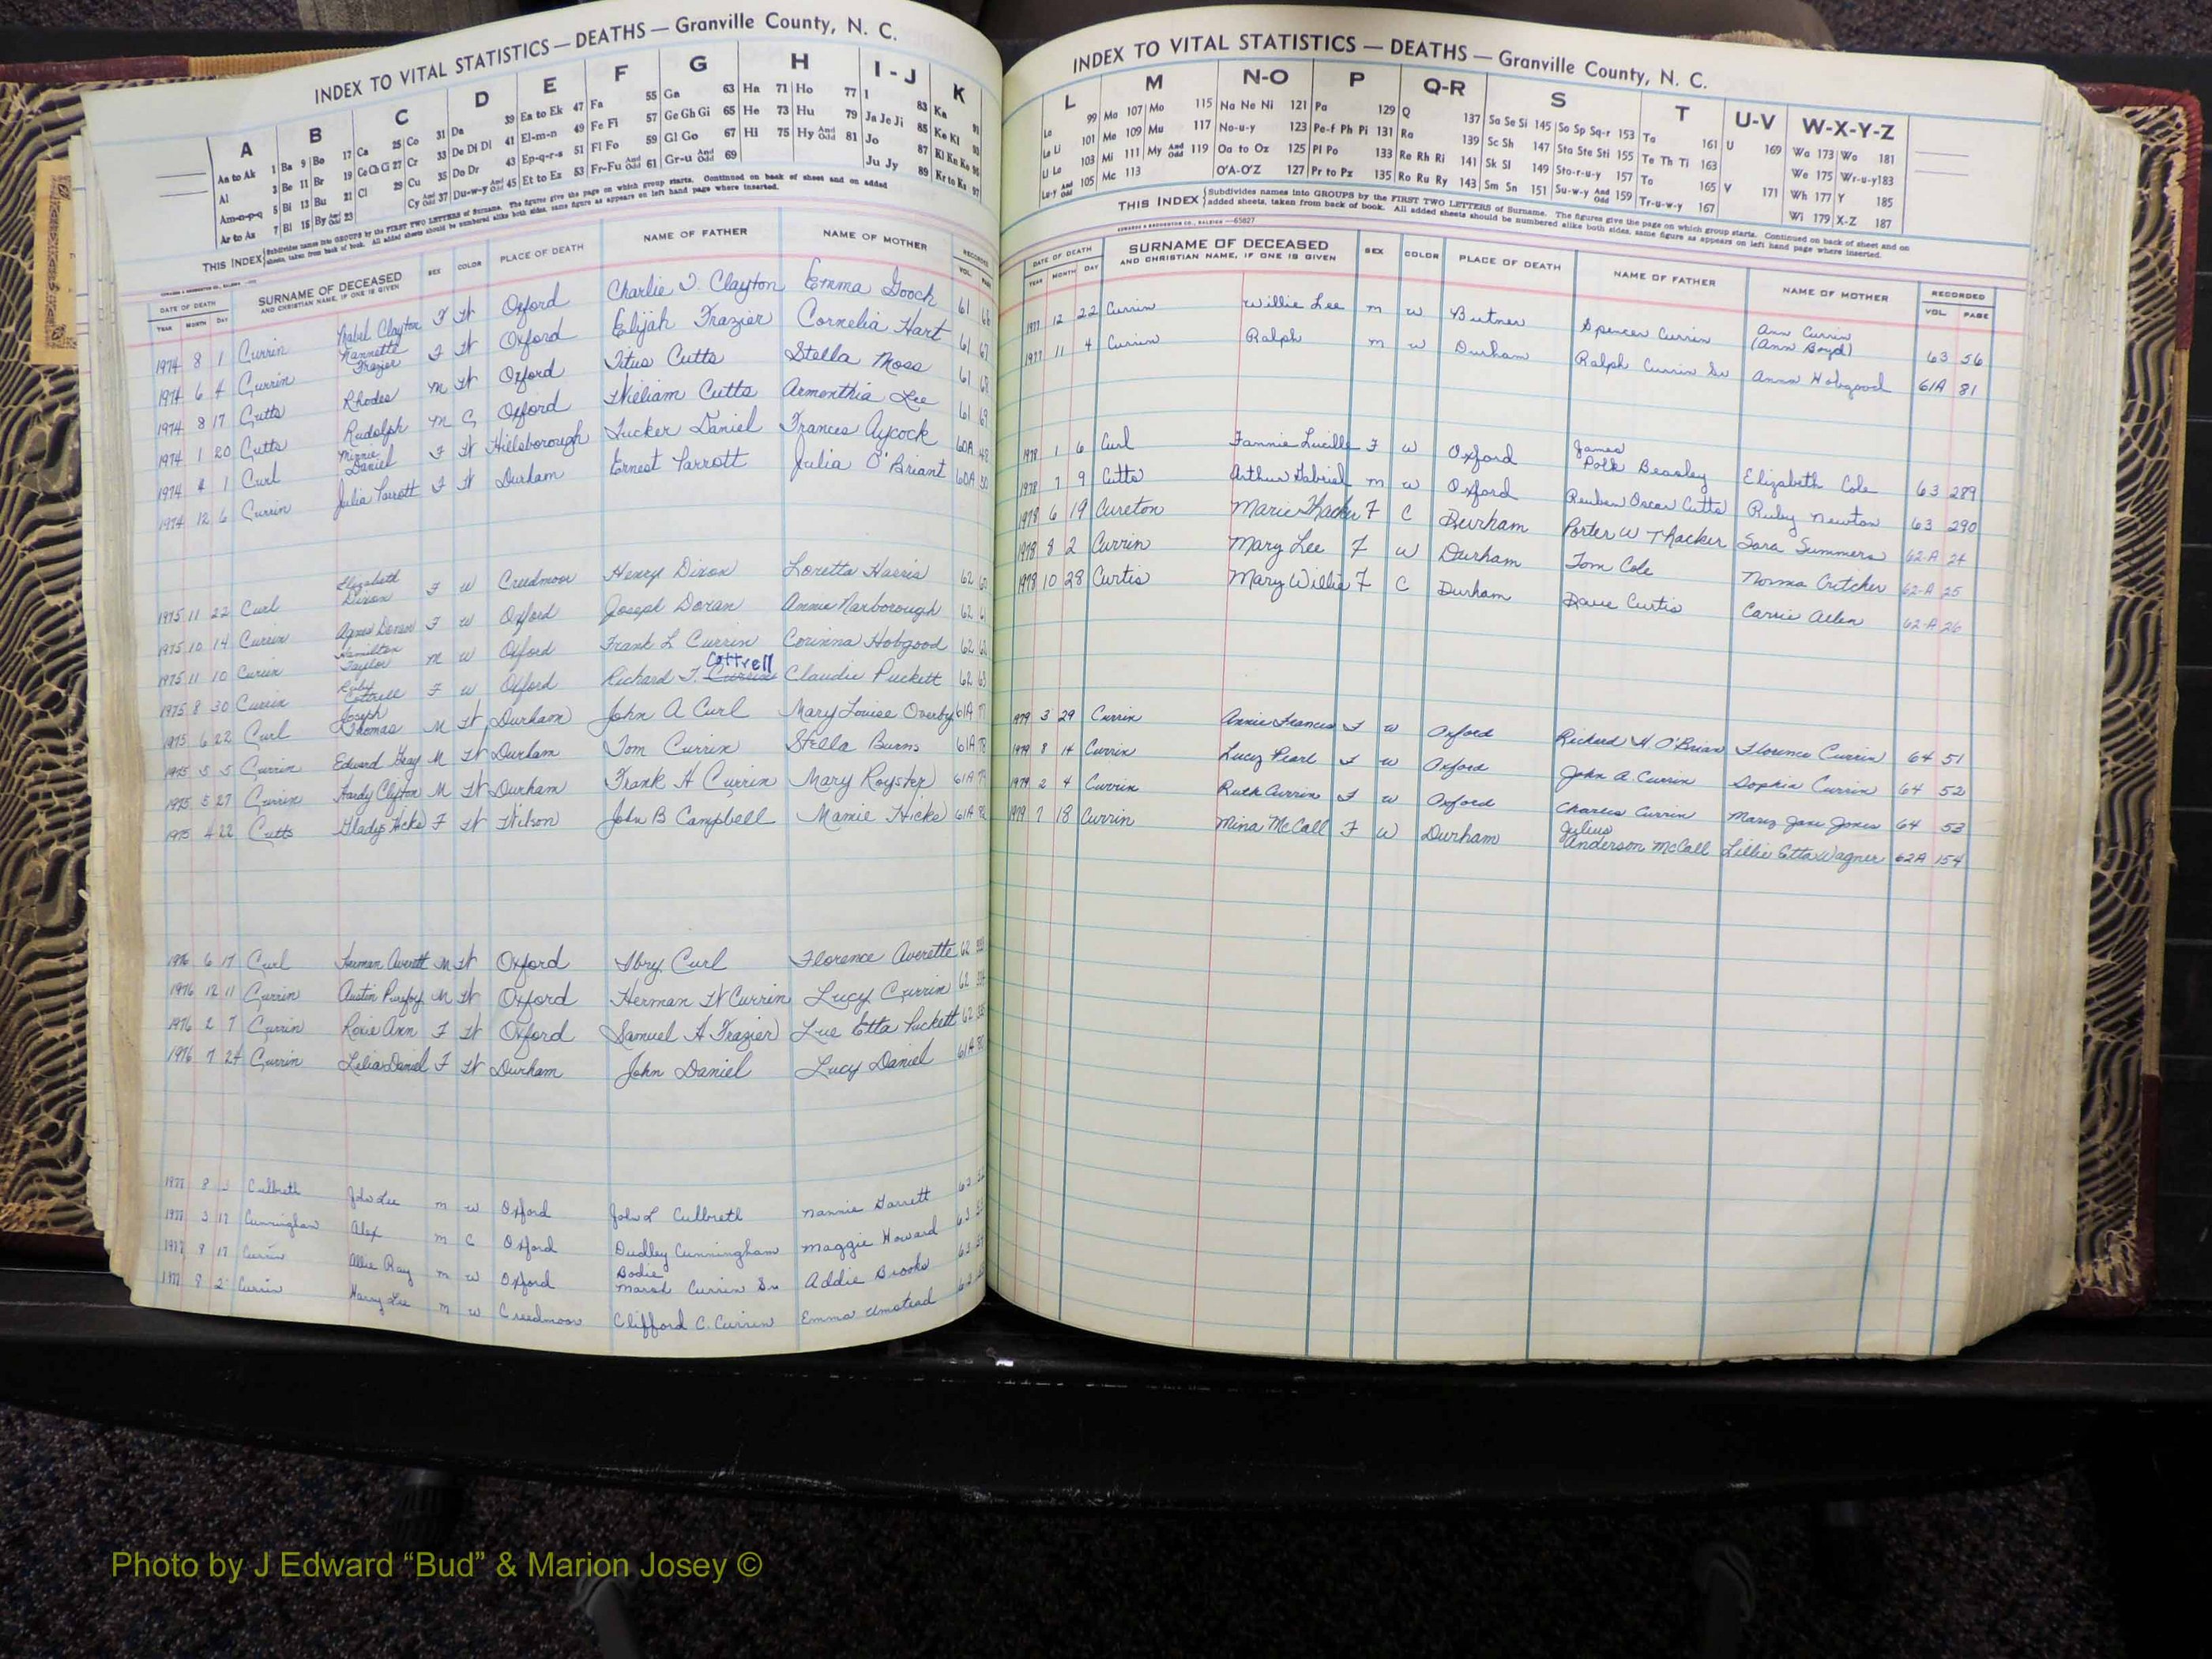 INDEX TO VITAL STATISTICS — DEATHS — Granville County, N. C.
A B C D E F G H I - J K
Aa to Ak 1 Ba 9 Bo 17 Ca 25 Co 31 Da 39 Ea to Ek 47 Fa 55 Ga 63 Ha 71 Ho 77 I 83 Ka 91
Al 3 Be 11 Br 19 Ce Ch Gi 27 Cr 33 De Di Dl 41 El-m-n 49 Fe Fi 57 Ge Gh Gi 65 He 73 Hu 79 Ja Je Ji 85 Ke Kl 93
Am-n-p-q 5 Bi 13 Bu 21 Cl 29 Cu 35 Do Dr 43 Ep-q-r-s 51 Fl Fo 59 Gl Go 67 Hi 75 Hy And Odd 81 Jo 87 Kl Kn Ko
Ar to Az 7 Bl 15 By And Odd 23 Cy And Odd 37 Du-w-y And Odd 45 Et to Ez 53 Fr-Fu And Odd 61 Gr-u And Odd 69 Ju Jy 89 Kr to Ku 97
THIS INDEX Subdivides names into GROUPS by the FIRST TWO LETTERS of Surname. The figures give the page on which group starts. Continued on back of sheet and on added
sheets, taken from back of book. All added sheets should be numbered alike both sides, same figure as appears on left hand page where inserted.
DATE OF DEATH SURNAME OF DECEASED SEX COLOR PLACE OF DEATH NAME OF FATHER NAME OF MOTHER RECORDED
YEAR MONTH DAY AND CHRISTIAN NAME, IF ONE IS GIVEN VOL.
1974 8 1 Currin Mabel Clayton F W Oxford Charlie T. Clayton Emma Gooch 61
1974 6 4 Currin Nannette Frazier F W Oxford Elijah Frazier Cornelia Hart 61 67
1974 8 17 Cutts Rhodes M W Oxford Titus Cutts Stella Moss 61 68
1974 1 20 Cutts Rudolph M C Oxford William Cutts Armenthia Lee 61 69
1974 4 1 Curl Minnie Daniel F W Hillsborough Tucker Daniel Frances Aycock 60A
1974 12 6 Currin Julia Parrott F W Durham Ernest Parrott Julia O'Briant 60A
1975 11 22 Curl Elizabeth Dixon F W Creedmoor Henry Dixon Loretta Harris 62
1975 10 14 Currin Agnes Doran F W Oxford Joseph Doran Annie Narborough 62 61
1975 11 10 Currin Hamilton Taylor M W Oxford Frank L Currin Corinna Hobgood 62 62
1975 8 30 Currin Ruby Cottrell F W Oxford Richard T. Currin Cottrell Claudie Puckett 62 63
1975 6 22 Curl Joseph Thomas M W Durham John A Curl Mary Louise Overby 61A
1975 5 5 Currin Edward Gray M W Durham Tom Currin Stella Burns 61A
1975 5 27 Currin Hardy Clifton M W Durham Frank H Currin Mary Royster 61A
1975 4 22 Cutts Gladys Hicks F W Wilson John B Campbell Mamie Hicks 61A
1976 6 17 Curl Herman Averett M W Oxford Ibry Curl Florence Averette 62
1976 12 11 Currin Austin Purefoy M W Oxford Herman W Currin Lucy Currin 62
1976 2 7 Currin Roxie Ann F W Oxford Samuel H Frazier Lue Etta Puckett 62
1976 7 24 Currin Lelia Daniel F W Durham John Daniel Lucy Daniel 61A
1977 8 Culbreth John Lee m w Oxford John L Culbreth Nannie Garrett 63
1977 3 17 Cunningham Alex m C Oxford Dudley Cunningham Maggie Howard 63
1977 9 17 Currin Allie Ray m w Oxford Bodie Currin Sr Addie Brooks 63
1977 8 2 Currin Harry Lee m w Creedmoor Clifford C. Currin Emma Umstead
INDEX TO VITAL STATISTICS — DEATHS — Granville County, N. C.
L M N-O P Q-R S T U-V W-X-Y-Z
La 99 Ma 107 Mo 115 Na Ne Ni 121 Pa 129 Q 137 Sa Se Si 145 So Sp Sq-r 153 Ta 161 U 169 Wa 173 Wo 181
Le Li 101 Me 109 Mu 117 No-u-y 123 Pe-f Ph Pi 131 Ra 139 Sc Sh 147 Sta Ste Sti 155 Te Th Ti 163 We 175 Wr-u-y 183
Ll Lo 103 Mi 111 My And Odd 119 Oa to Oz 125 Pl Po 133 Re Rh Ri 141 Sk Sl 149 Sto-r-u-y 157 To 165 V 171 Wh 177 Y 185
Lu-y And Odd 105 Mc 113 O'A-O'Z 127 Pr to Pz 135 Ro Ru Ry 143 Sm Sn 151 Su-w-y And Odd 159 Tr-u-w-y 167 Wi 179 X-Z 187
THIS INDEX Subdivides names into GROUPS by the FIRST TWO LETTERS of Surname. The figures give the page on which group starts. Continued on back of sheet and on
added sheets, taken from back of book. All added sheets should be numbered alike both sides, same figure as appears on left hand page where inserted.
DATE OF DEATH SURNAME OF DECEASED SEX COLOR PLACE OF DEATH NAME OF FATHER NAME OF MOTHER RECORDED
YEAR MONTH DAY AND CHRISTIAN NAME, IF ONE IS GIVEN VOL. PAGE
1977 12 22 Currin Willie Lee m w Butner Spencer Currin Ann Currin (Ann Boyd) 63 56
1977 11 4 Currin Ralph m w Durham Ralph Currin Sr Annn Hobgood 61A 81
1978 1 6 Curl Fannie Lucille F W Oxford James Polk Beasley Elizabeth Cole 63 289
1978 7 9 Cutts Arthur Gabriel m w Oxford Reuben Oscar Cutts Ruby Newton 63 290
1978 6 19 Cureton Marie Thacker F C Durham Porter W Thacker Sara Summers 62-A 24
1978 8 2 Currin Mary Lee F W Durham Tom Cole Norma Critcher 62-A 25
1978 10 28 Curtis Mary Willie F C Durham Dave Curtis Carrie Allen 62-A 26
1979 3 29 Currin Annie Frances F W Oxford Richard H. O'Brian Florence Currin 64 51
1979 8 14 Currin Lucy Pearl F W Oxford John A. Currin Sophia Currin 64 52
1979 2 4 Currin Ruth Currin F W Oxford Charles Currin Mary Jane Jones 64 53
1979 7 18 Currin Mina McCall F W Durham Julius Anderson McCall Lillie Etta Wagner 62A 154
Photo by J Edward “Bud” & Marion Josey ©